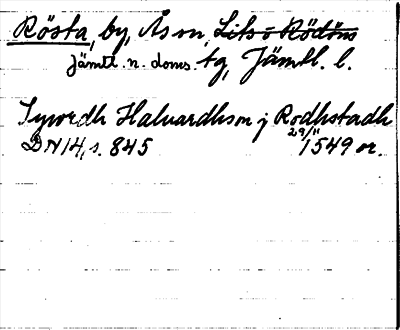 Rösta, by, Ås sn, Lits o Rödöns
Jämtl. n. doms. tg, Jämtl. l.
Sywrdh Haluardhson j Rodhstadh
DN 14, s. 845 29/11 1549 or.